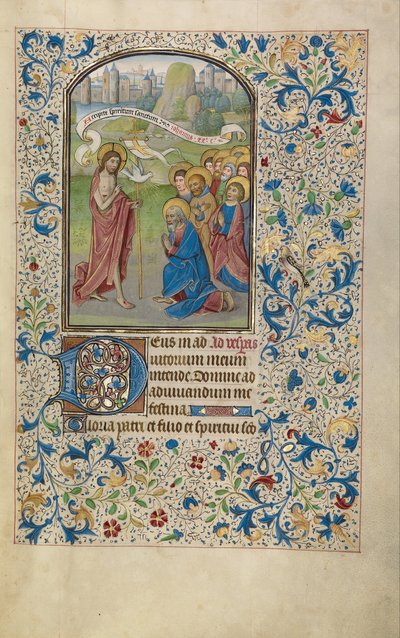 Accipite spiritum sanctum Johannis
Deus in ad Ad vesp̄as
iutorium meum
intende. Domine ad
adiuuandum me
festina.
Gloria patri et filio et spiritui sc̄o